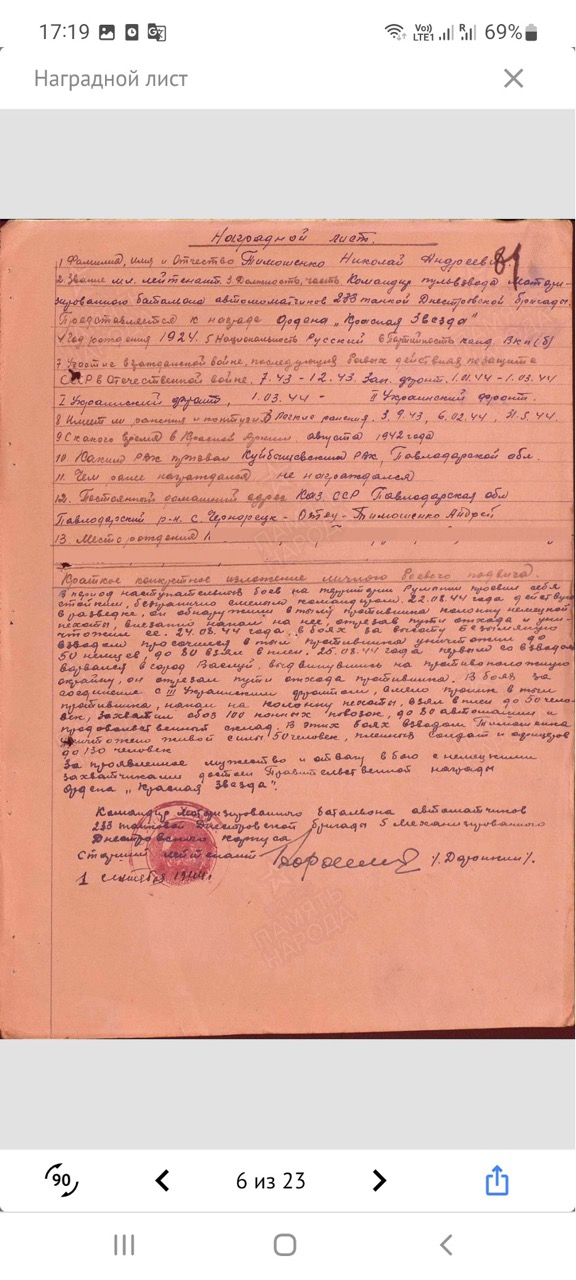 17:19
Vo)) LTE1 R 69%
Наградной лист
Наградной лист.
81
1 Фамилия, имя и Отчество Тимошенко Николай Андреевич
2 Звание мл. лейтенант. 3 Должность, часть Командир пульвзвода мотори-
зированного батальона автоматчиков 233 танкой Днестровской бригады.
Представляется к награде Ордена „Красная Звезда"
4 Год рождения 1924. 5 Национальность Русский 6 Партийность канд. Вкп(б)
7 Участие в гражданской войне, последующих боевых действиях по защите
СССР в Отечественной войне. 7.43 - 12.43 Зап. фронт. 1.01.44 - 1.03.44
I Украинский фронт, 1.03.44 - II Украинский фронт.
8 Имеет ли ранения и контузии 3 Легкие ранения. 3.9.43, 6.02.44, 31.5.44
9 С какого время в Красной Армии августа 1942 года
10. Каким РВК призван Куйбышевским РВК, Павлодарской обл.
11. Чем ранее награждался не награждался
12. Постоянный домашний адрес Каз. ССР Павлодарская обл
Павлодарский р-н. с. Чернорецк - Отец - Тимошенко Андрей
13 Место рождения
Краткое конкретное изложение личного боевого подвига
В период наступательных боев на территории Румынии проявил себя
стойким, безгранично смелым командиром. 22.08.44 года действуя
в разведке, он обнаружил в тылу противника колонну немецкой
пехоты, внезапно напал на нее, отрезав пути отхода и уни-
чтожил ее. 24.08.44 года, в боях за высоту безымянную
взводом просочился в тыл противника уничтожил до
50 немцев до 30 взял в плен. 25.08.44 года первым со взводом
ворвался в город Васлуй, выдвинувшись на противоположную
окрайну, он отрезал пути отхода противника. В боях за
соединение с III Украинским фронтом, смело проник в тыл
противника, напал на колонну пехоты, взял в плен до 50 чело-
век, захватил обоз 100 конных повозок, до 30 автомашин и
продовольственный склад. В этих боях взводом Тимошенко
уничтожено живой силы 50 человек, пленных солдат и офицеров
до 130 человек
За проявленное мужество и отвагу в бою с немецкими
захватчиками достоин Правительственной награды
Ордена „Красная Звезда".
Командир Моторизированного батальона автоматчиков
233 танковой Днестровской бригады 5 механизированного
Днестровского корпуса
Старший лейтенант
1 сентября 1944г.
ПАМЯТЬ НАРОДА
90
6 из 23